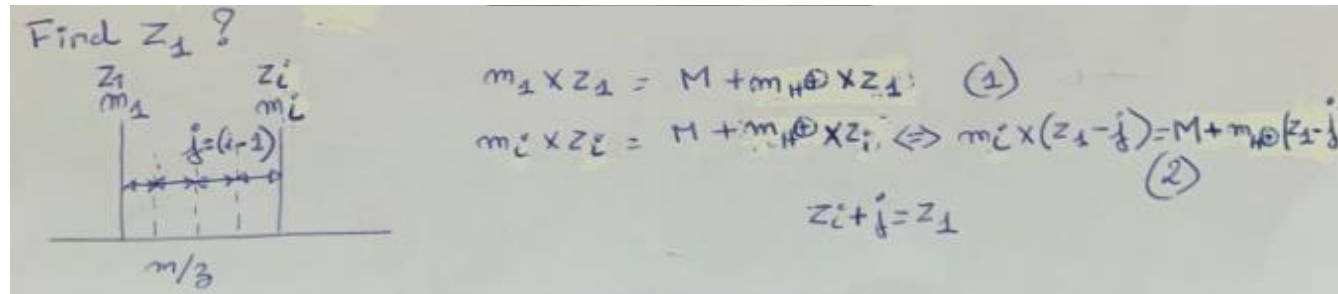 Find Z₁ ?
Z₁ Zi
m₁ mi
j=(i-1)
m/z
m₁ × Z₁ = M + m_H⊕ × Z₁ (1)
mi × Zi = M + m_H⊕ × Zi ⇔ mi × (Z₁-j) = M + m_H⊕ (Z₁-j
(2)
Zi + j = Z₁